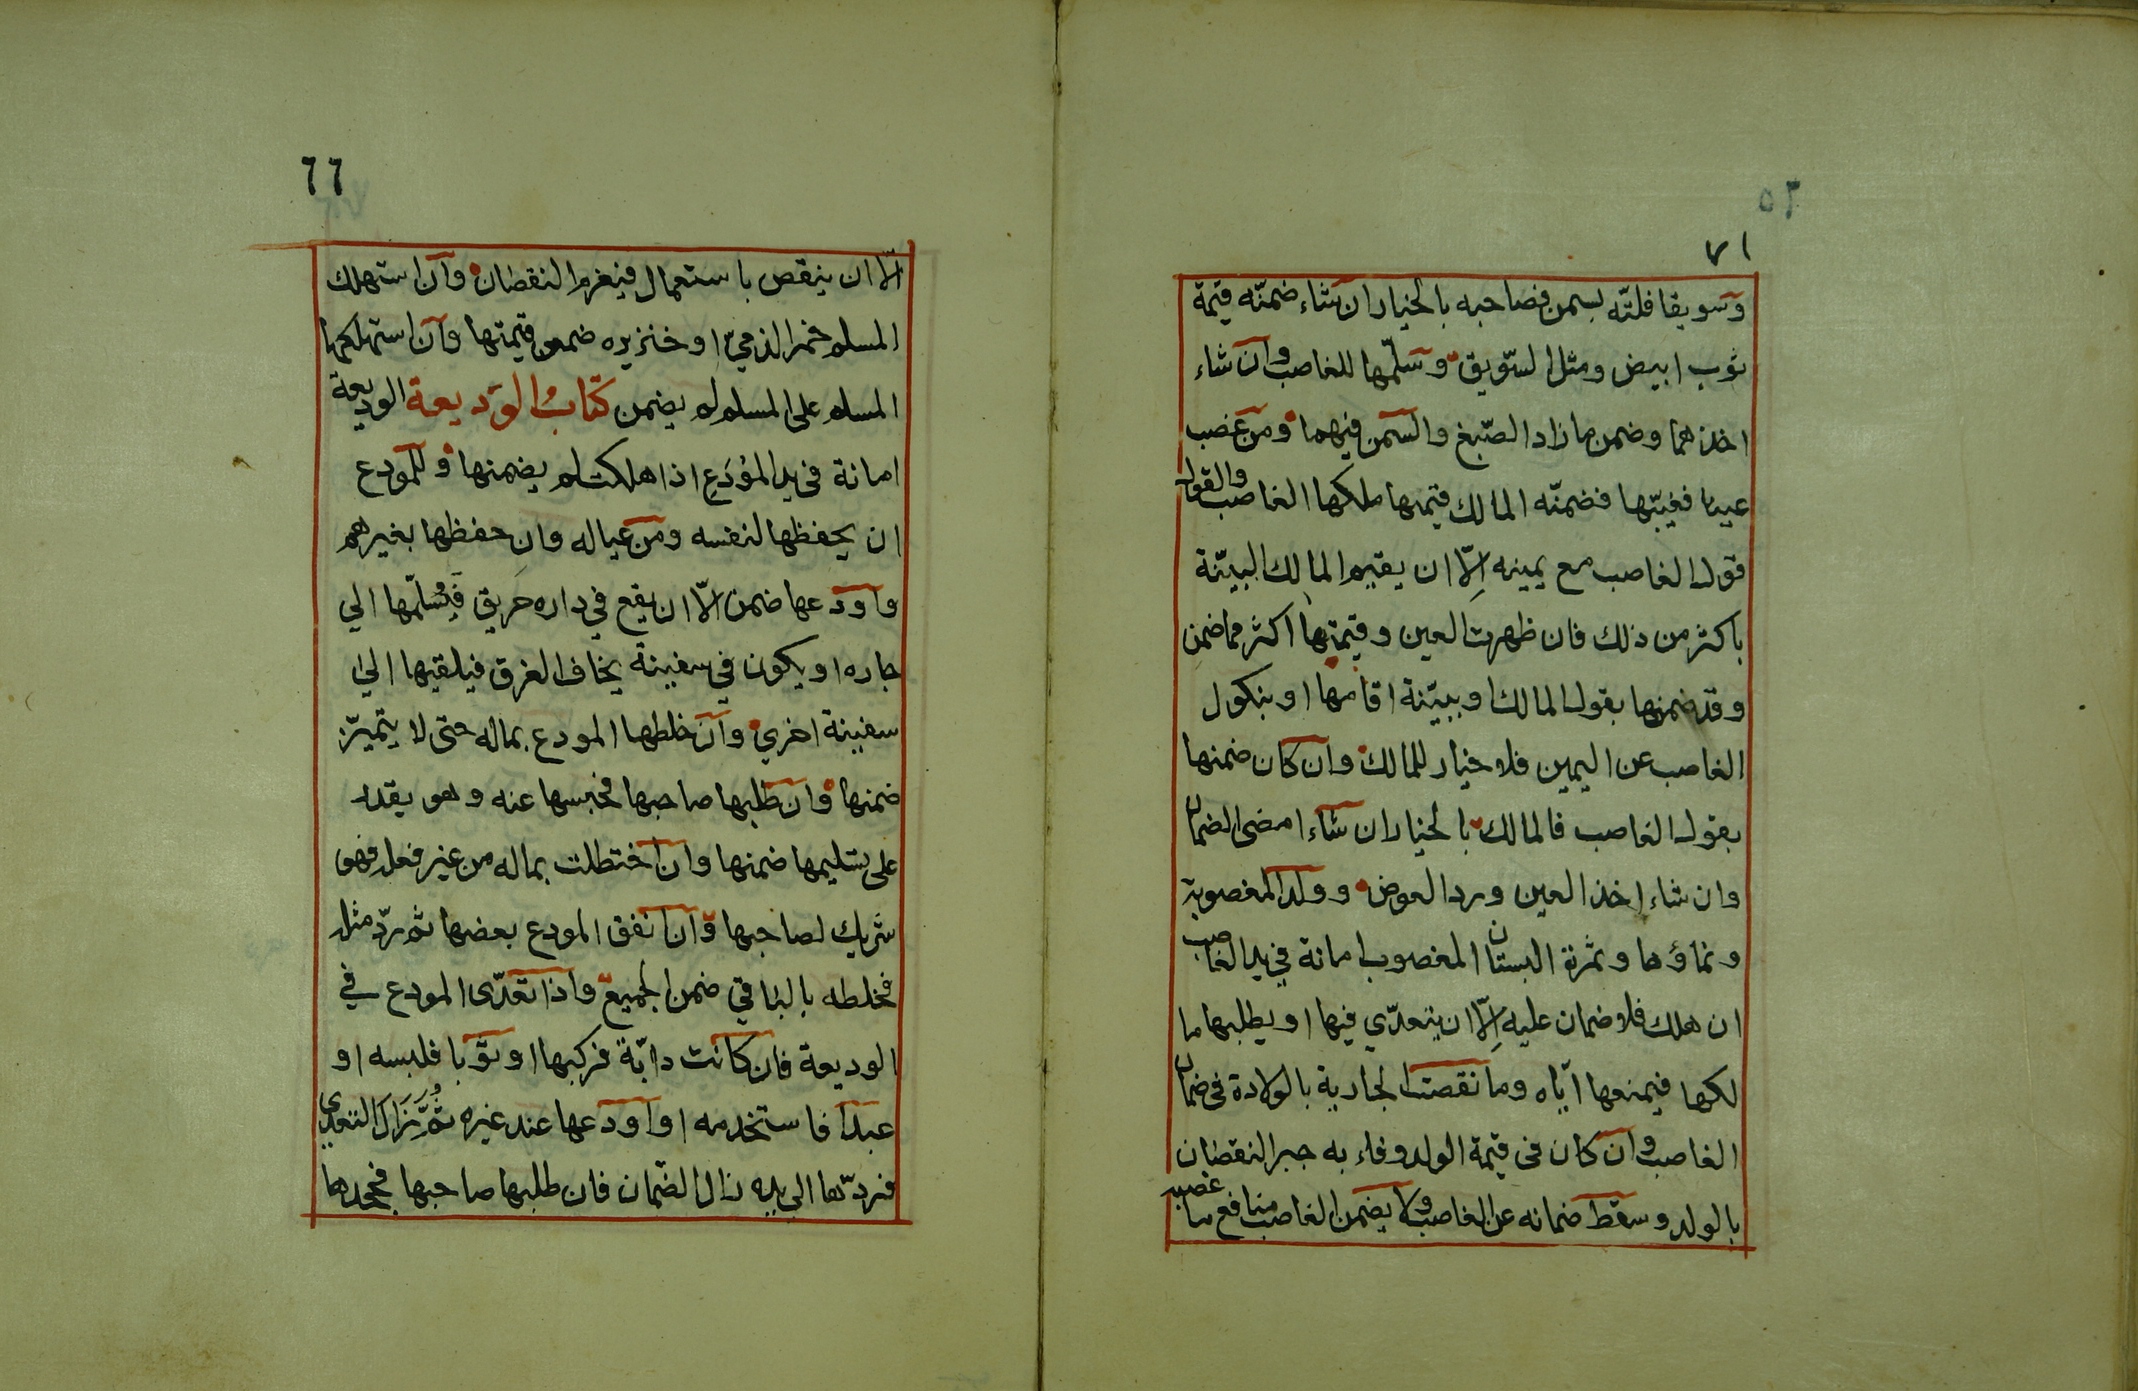 ٥٣
٧١
وسويقا فلتّه بسمن فصاحبه بالخيار ان شاء ضمنّه قيمة
ثوب ابيض ومثل السّويق وسلّمها للغاصب وان شاء
اخذهما وضمن ما زاد الصّبغ والسمن فيهما ومن غصب
عينا فغيّبها فضمنّه المالك قيمتها ملكها الغاصب والقول
قول الغاصب مع يمينه إلّا ان يقيم المالك البيّنة
باكثر من ذلك فان ظهرت العين وقيمتها اكثر مما ضمن
وقد ضمنها بقول المالك او ببيّنة اقامها او بنكول
الغاصب عن اليمين فلا خيار للمالك وان كان ضمنها
بقول الغاصب فالمالك بالخيار ان شاء امضى الضمان
وان شاء اخذ العين ورد العوض وولد المغصوبة
ونماؤها وثمرة البستان المغصوب امانة في يد الغاصب
ان هلك فلا ضمان عليه إلّا ان يتعدّي فيها او يطلبها ما
لكها فيمنعها ايّاه وما نقصت الجارية بالولادة في ضمان
الغاصب وان كان في قيمة الولد وفاء به جبر النقصان
بالولد وسقط ضمانه عن الغاصب ولا يضمن الغاصب منافع ما غصبه
٦٦
الّا ان ينقص باستعمال فيغرم النقصان وان استهلك
المسلم خمر الذميّ او خنزيره ضمن قيمتها وان استهلكها
المسلم على المسلم لم يضمن كتابُ الوديعة الوديعة
امانة في يد المُودَعِ اذا هلكت لم يضمنها وللمودع
ان يحفظها لنفسه ومن عياله وان حفظها بغيرهم
واودعها ضمن الّا ان يقع في داره حريق فَيُسلّمها الي
جاره او يكون في سفينة يخاف الغرق فيلقيها الي
سفينة اخري وان خلطها المودع بماله حتى لا يتميّز
ضمنها وان طلبها صاحبها فحبسها عنه وهو يقدر
على تسليمها ضمنها وان اختطلت بماله من غير فعله فهو
شريك لصاحبها وان انفق المودع بعضها ثم ردّ مثله
فخلطه بالباقي ضمن الجميع واذا تعدّى المودع في
الوديعة فان كانت دابّة فركبها او ثوبا فلبسه او
عبدا فاستخدمه او اودعها عند غيره ثُمَّ زَالَ التعدي
فردّها الي يده زال الضّمان فان طلبها صاحبها فجحدها